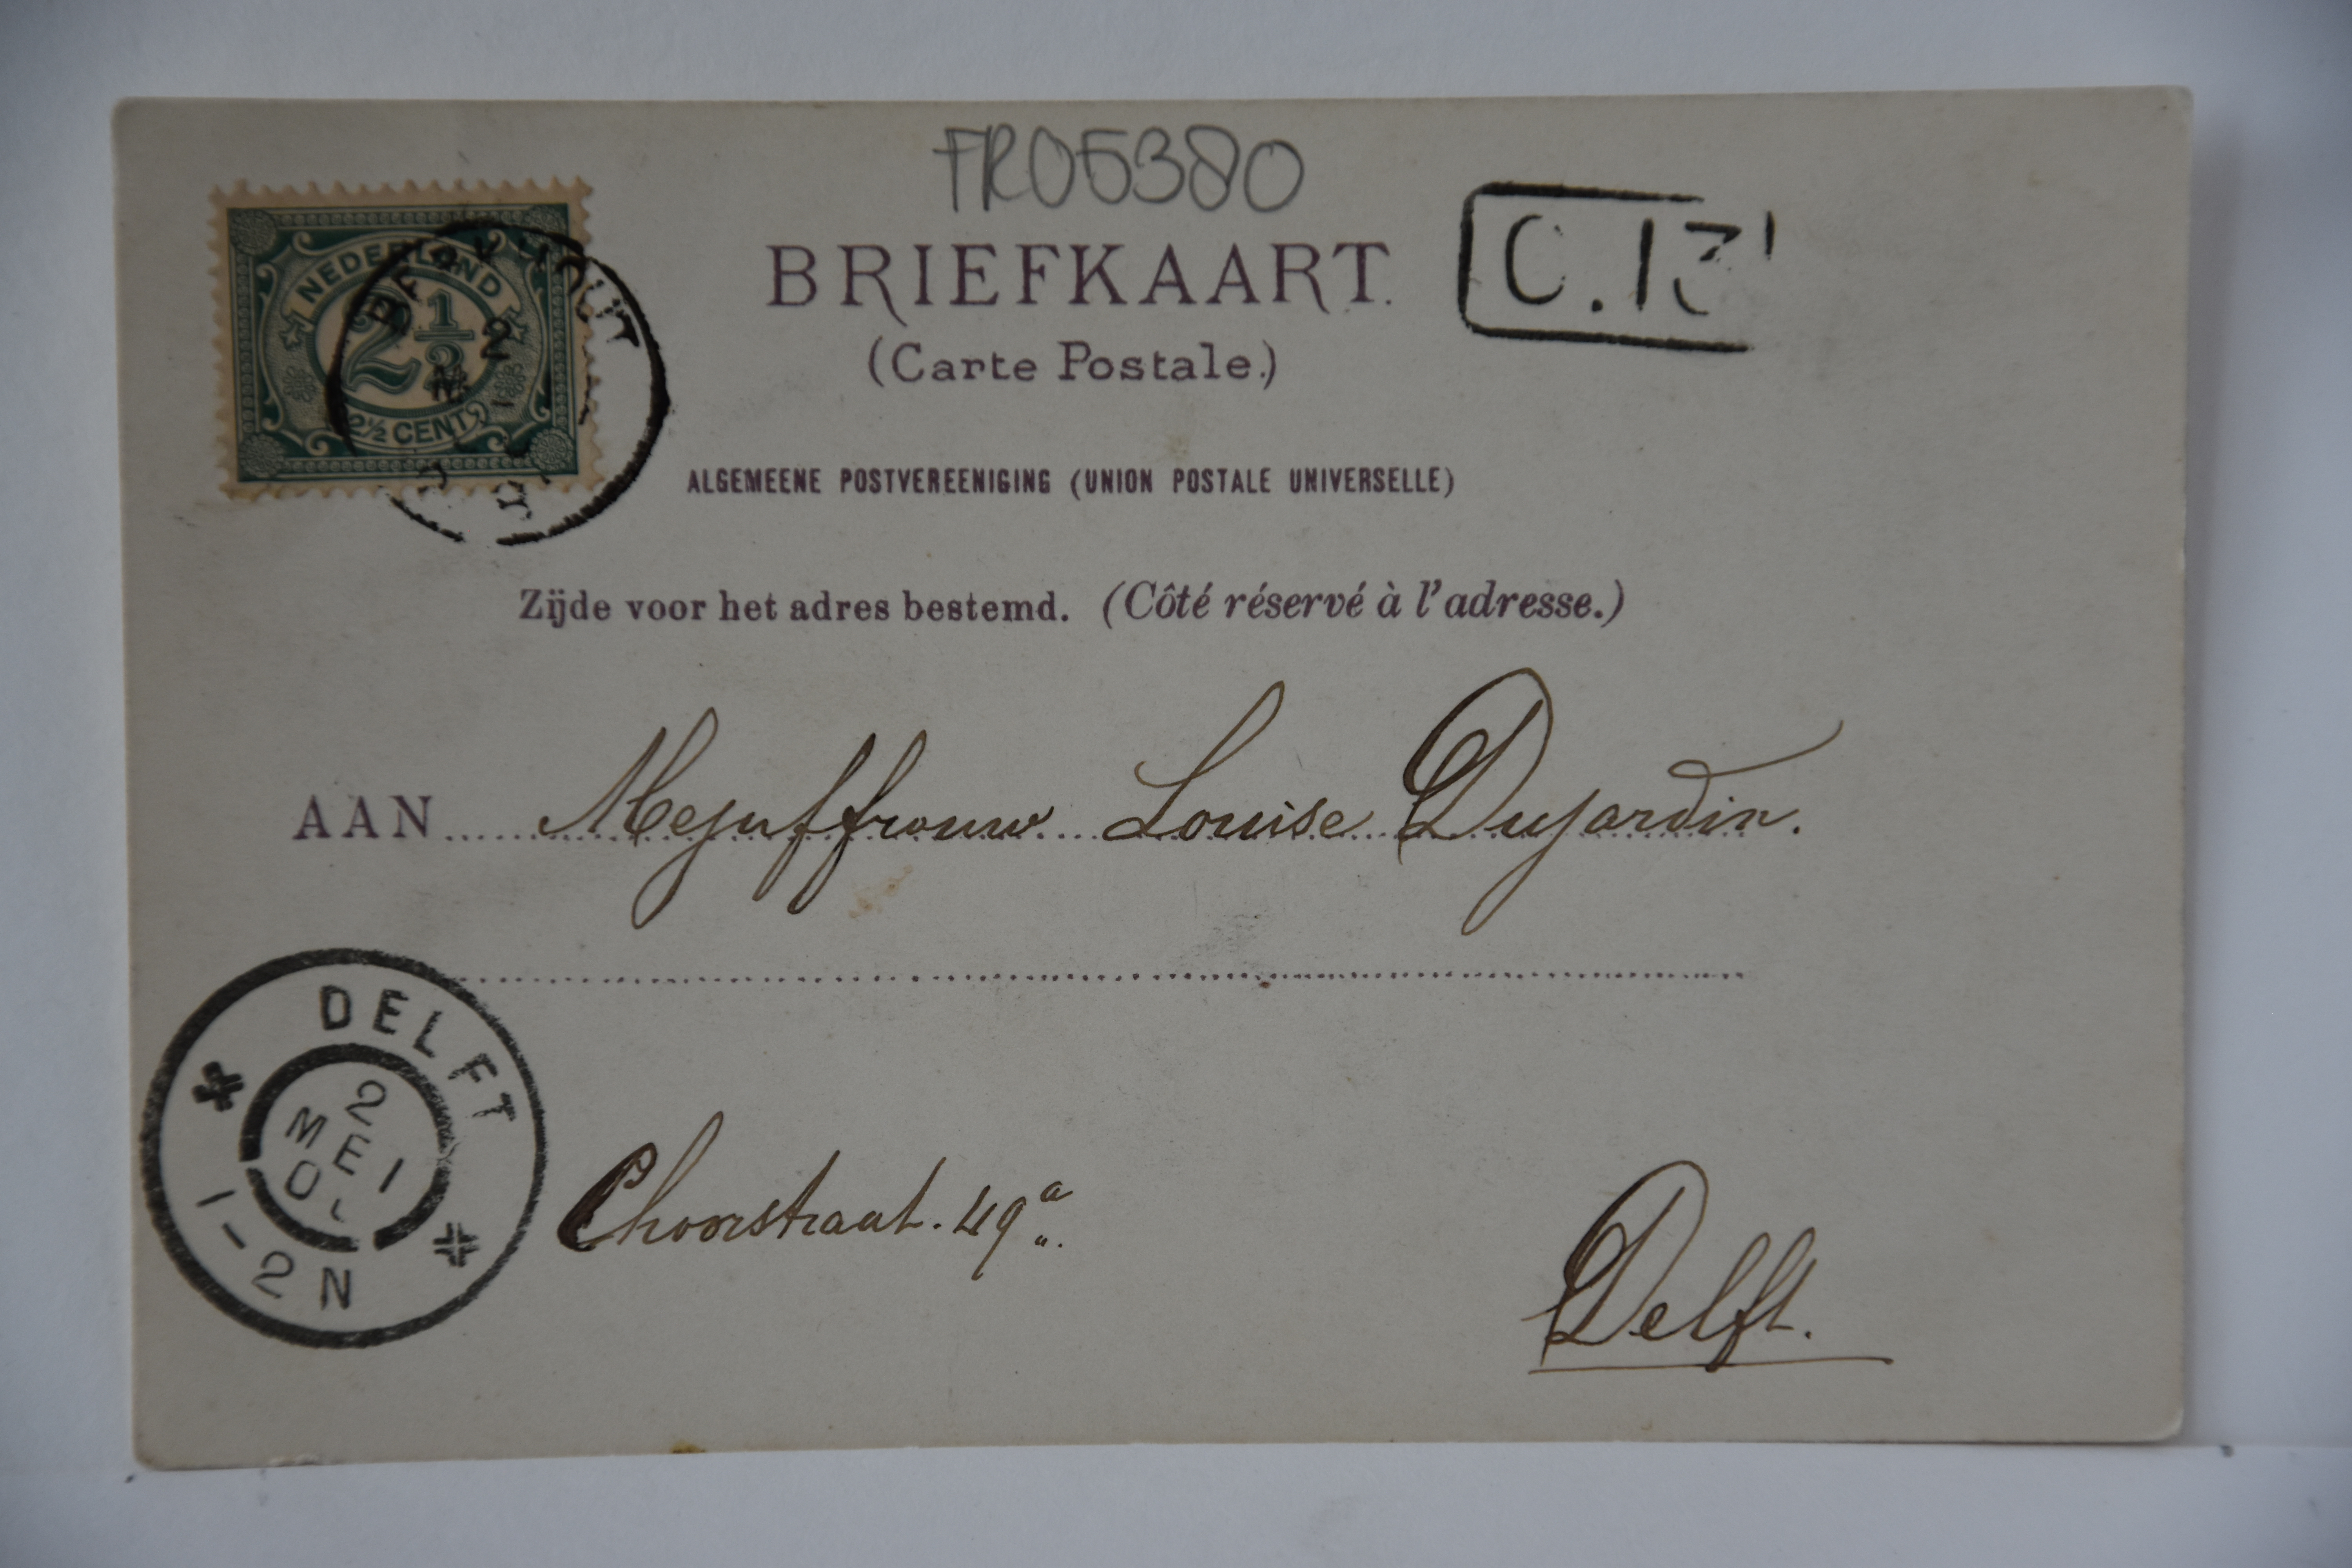 FR05380
NEDERLAND
2 1/2
2½ CENT
2
BRIEFKAART.
(Carte Postale.)
ALGEMEENE POSTVEREENIGING (UNION POSTALE UNIVERSELLE)
Zijde voor het adres bestemd. (Côté réservé à l'adresse.)
AAN Mejuffrouw Louise Dujardin.
DELFT
2
MEI
1-2N
Choorstraat. 49a
Delft.